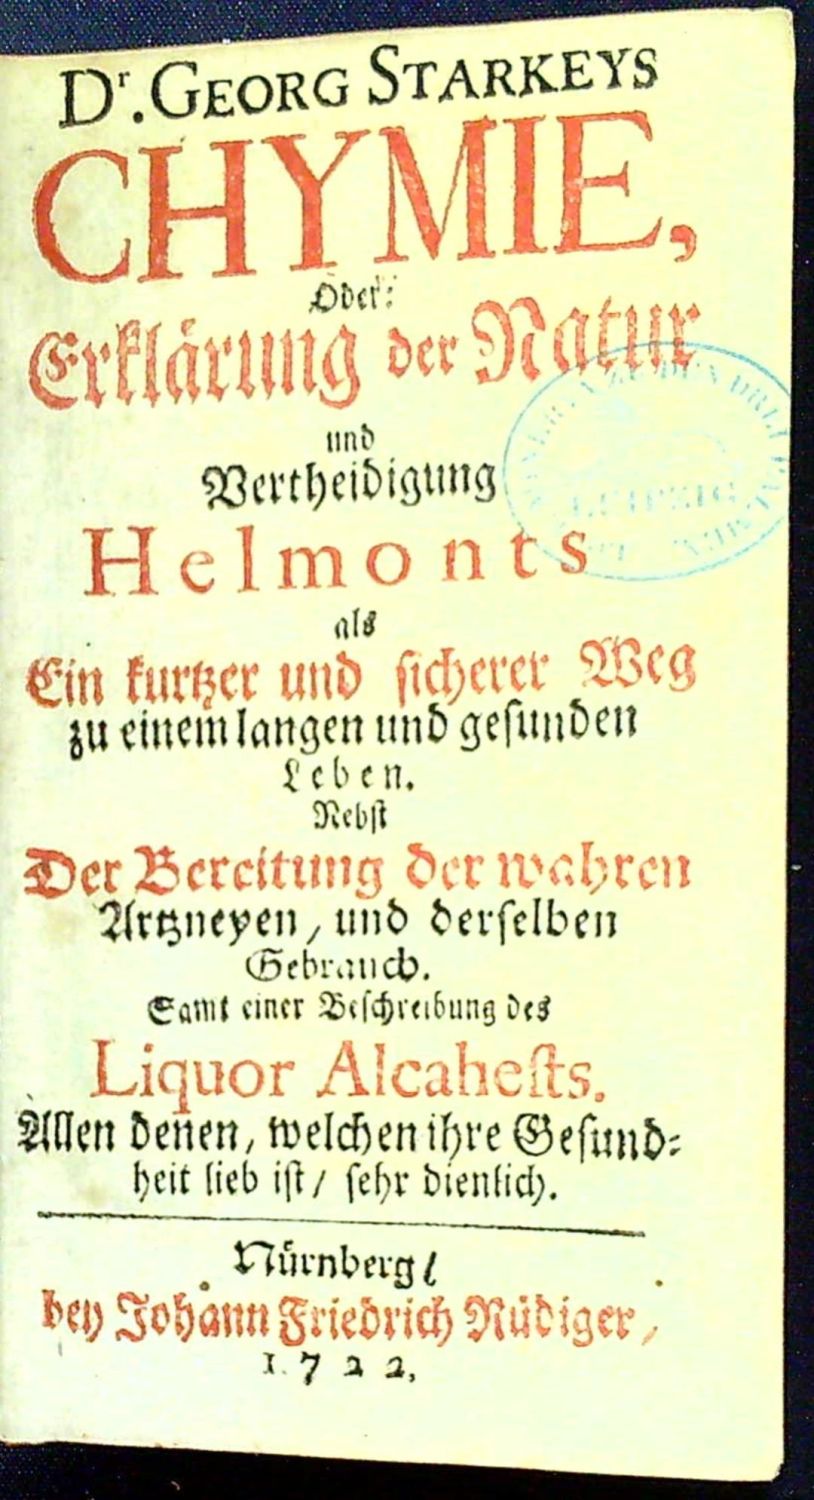 Dr. GEORG STARKEYS
CHYMIE,
Oder:
Erklärung der Natur
und
Vertheidigung
Helmonts
als
Ein kurtzer und sicherer Weg
zu einem langen und gesunden
Leben.
Nebst
Der Bereitung der wahren
Artzneyen, und derselben
Gebrauch.
Samt einer Beschreibung des
Liquor Alcahests.
Allen denen, welchen ihre Gesund-
heit lieb ist / sehr dienlich.
Nürnberg /
bey Johann Friedrich Rüdiger,
1722.